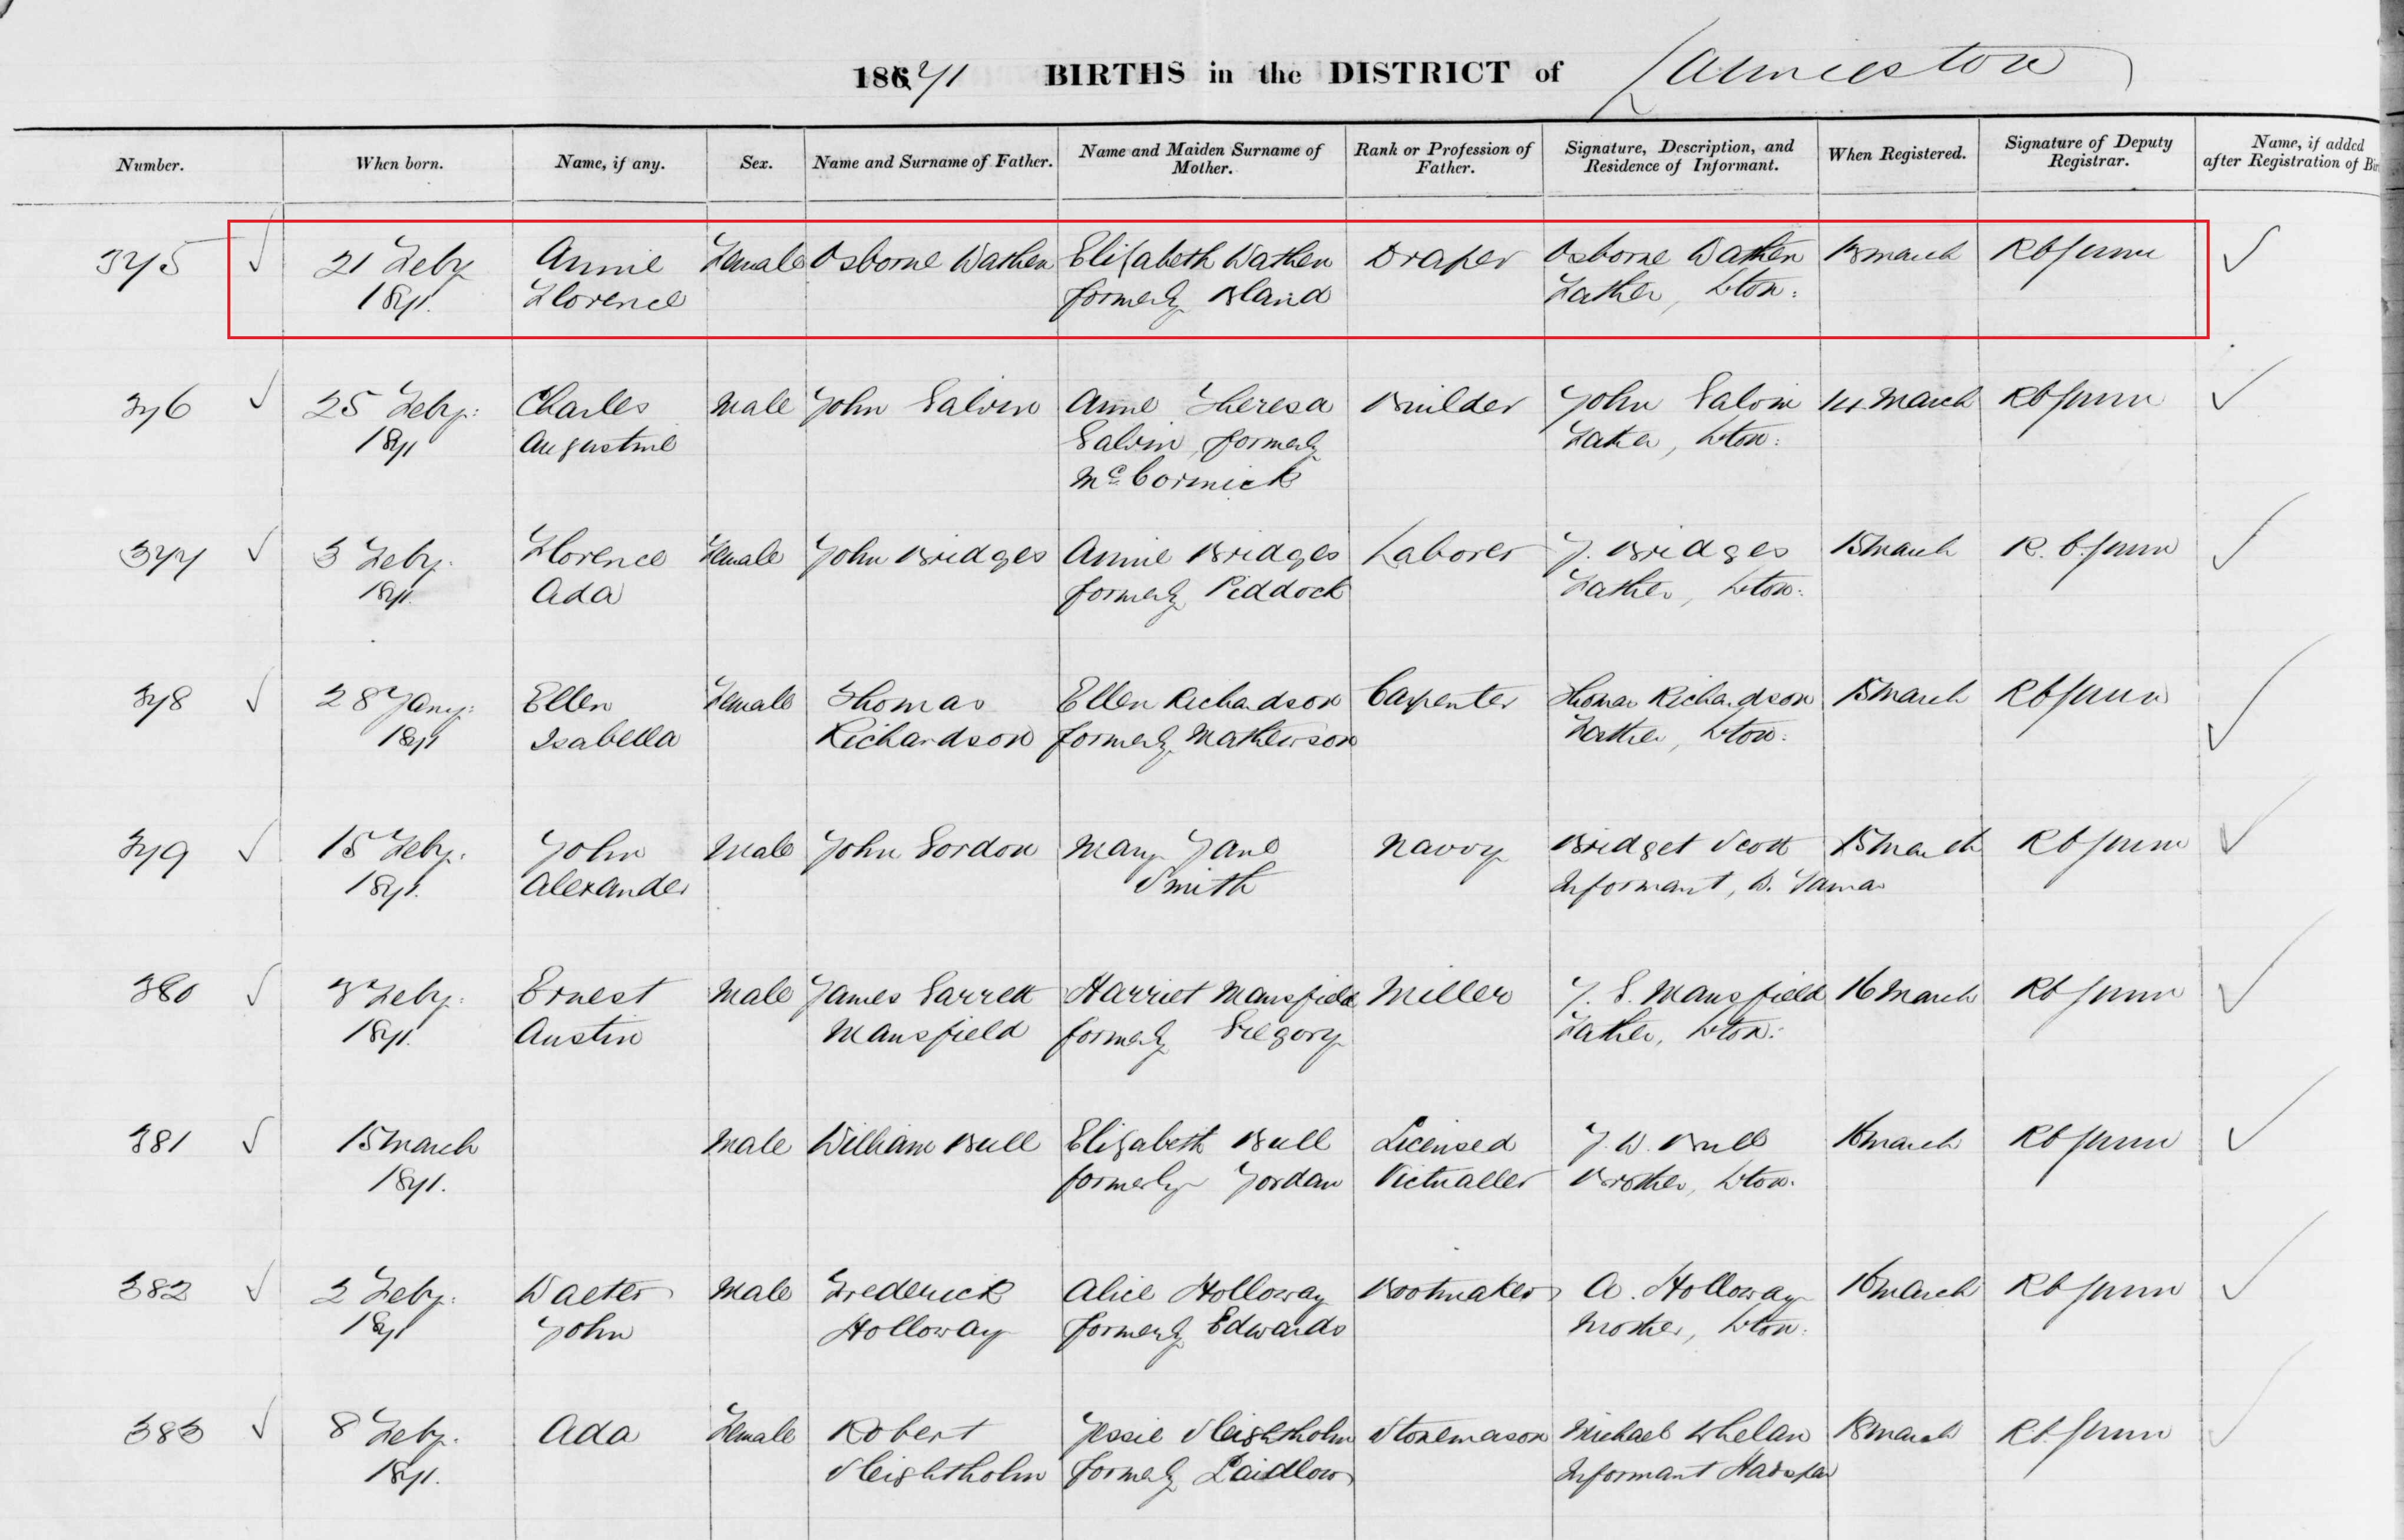 18671 BIRTHS in the DISTRICT of Launceston
Number. When born. Name, if any. Sex. Name and Surname of Father. Name and Maiden Surname of Mother. Rank or Profession of Father. Signature, Description, and Residence of Informant. When Registered. Signature of Deputy Registrar. Name, if added after Registration of
375 21 Feby Annie Female Osborne Wathen Elizabeth Wathen Draper Osborne Wathen 13 March
1871. Florence formerly Bland Father, Lton:
376 25 Feby: Charles Male John Galvin Anne Theresa Builder John Galvin 14 March
1871 Augustine Galvin, formerly Father, Lton:
McCormick
377 3 Feby. Florence Female John Bridges Annie Bridges Laborer J. Bridges 15 March
1871. Ada formerly Piddock Father, Lton:
378 28 Jany: Ellen Female Thomas Ellen Richardson Carpenter Thomas Richardson 15 March
1871 Isabella Richardson formerly Mathewson Father, Lton:
379 15 Feby. John Male John Gordon Mary Jane Navvy Bridget Scott 15 March
1871. Alexander Smith Informant, Tamar
380 3 Feby: Ernest Male James Garrett Harriet Mansfield Miller J. G. Mansfield 16 March
1871. Austin Mansfield formerly Gregory Father, Lton:
381 15 March Male William Bull Elizabeth Bull Licensed J. W. Bull 16 March
1871. formerly Jordan Victualler Brother, Lton.
382 2 Feby: Walter Male Frederick Alice Holloway Bootmaker A. Holloway 16 March
1871 John Holloway formerly Edwards Mother, Lton:
383 8 Feby. Ada Female Robert Jessie Sleightholm Stonemason Michael Whelan 18 March
1871. Sleightholm formerly Laidlow Informant